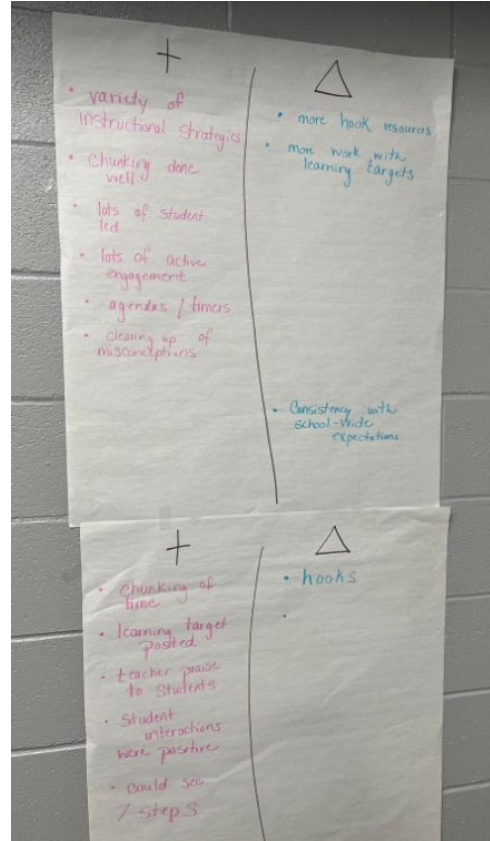 +
• variety of
instructional strategies
• Chunking done
well
• lots of student
led
• lots of active
engagement
• agendas / timers
• clearing up of
misconceptions
△
• more hook resources
• more work with
learning targets
• Consistency with
school-wide
expectations
+
• Chunking of
time
• learning target
posted
• teacher praise
to students
• Student
interactions
were positive
• Could see
7 steps
△
• hooks
•